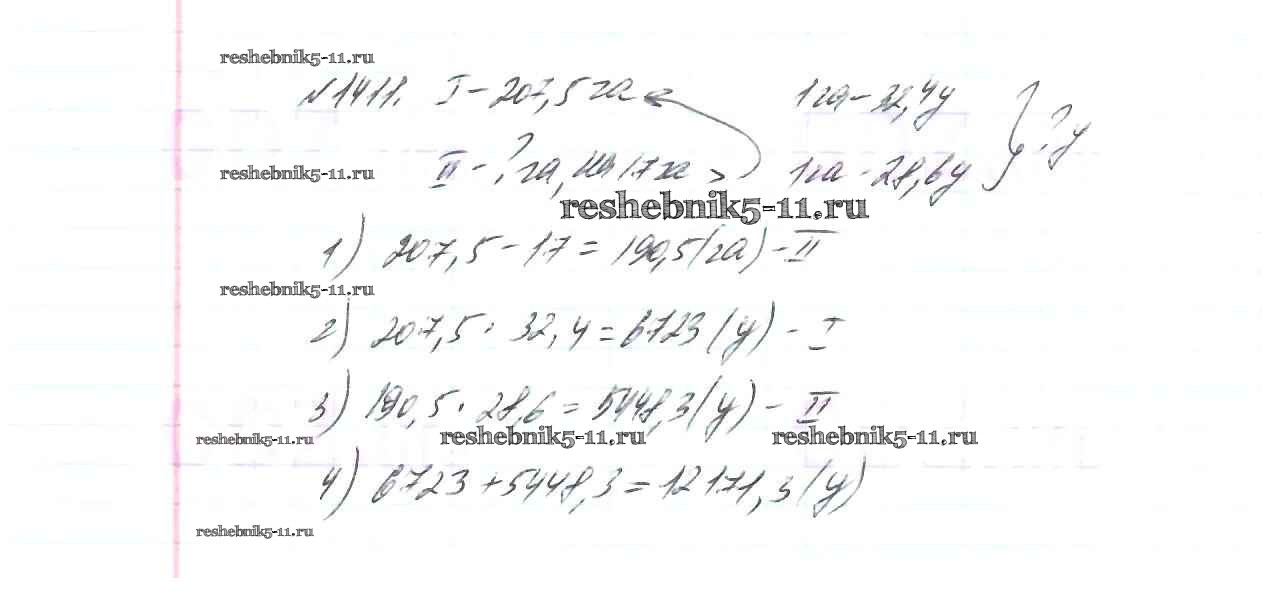 reshebnik5-11.ru
№1411. I - 207,5 га 1га - 32,4ц
II - ? га, на 17га > 1га - 28,6ц } ? ц
reshebnik5-11.ru
reshebnik5-11.ru
1) 207,5 - 17 = 190,5 (га) - II
reshebnik5-11.ru
2) 207,5 · 32,4 = 6723 (ц) - I
3) 190,5 · 28,6 = 5448,3 (ц) - II
reshebnik5-11.ru reshebnik5-11.ru reshebnik5-11.ru
4) 6723 + 5448,3 = 12171,3 (ц)
reshebnik5-11.ru